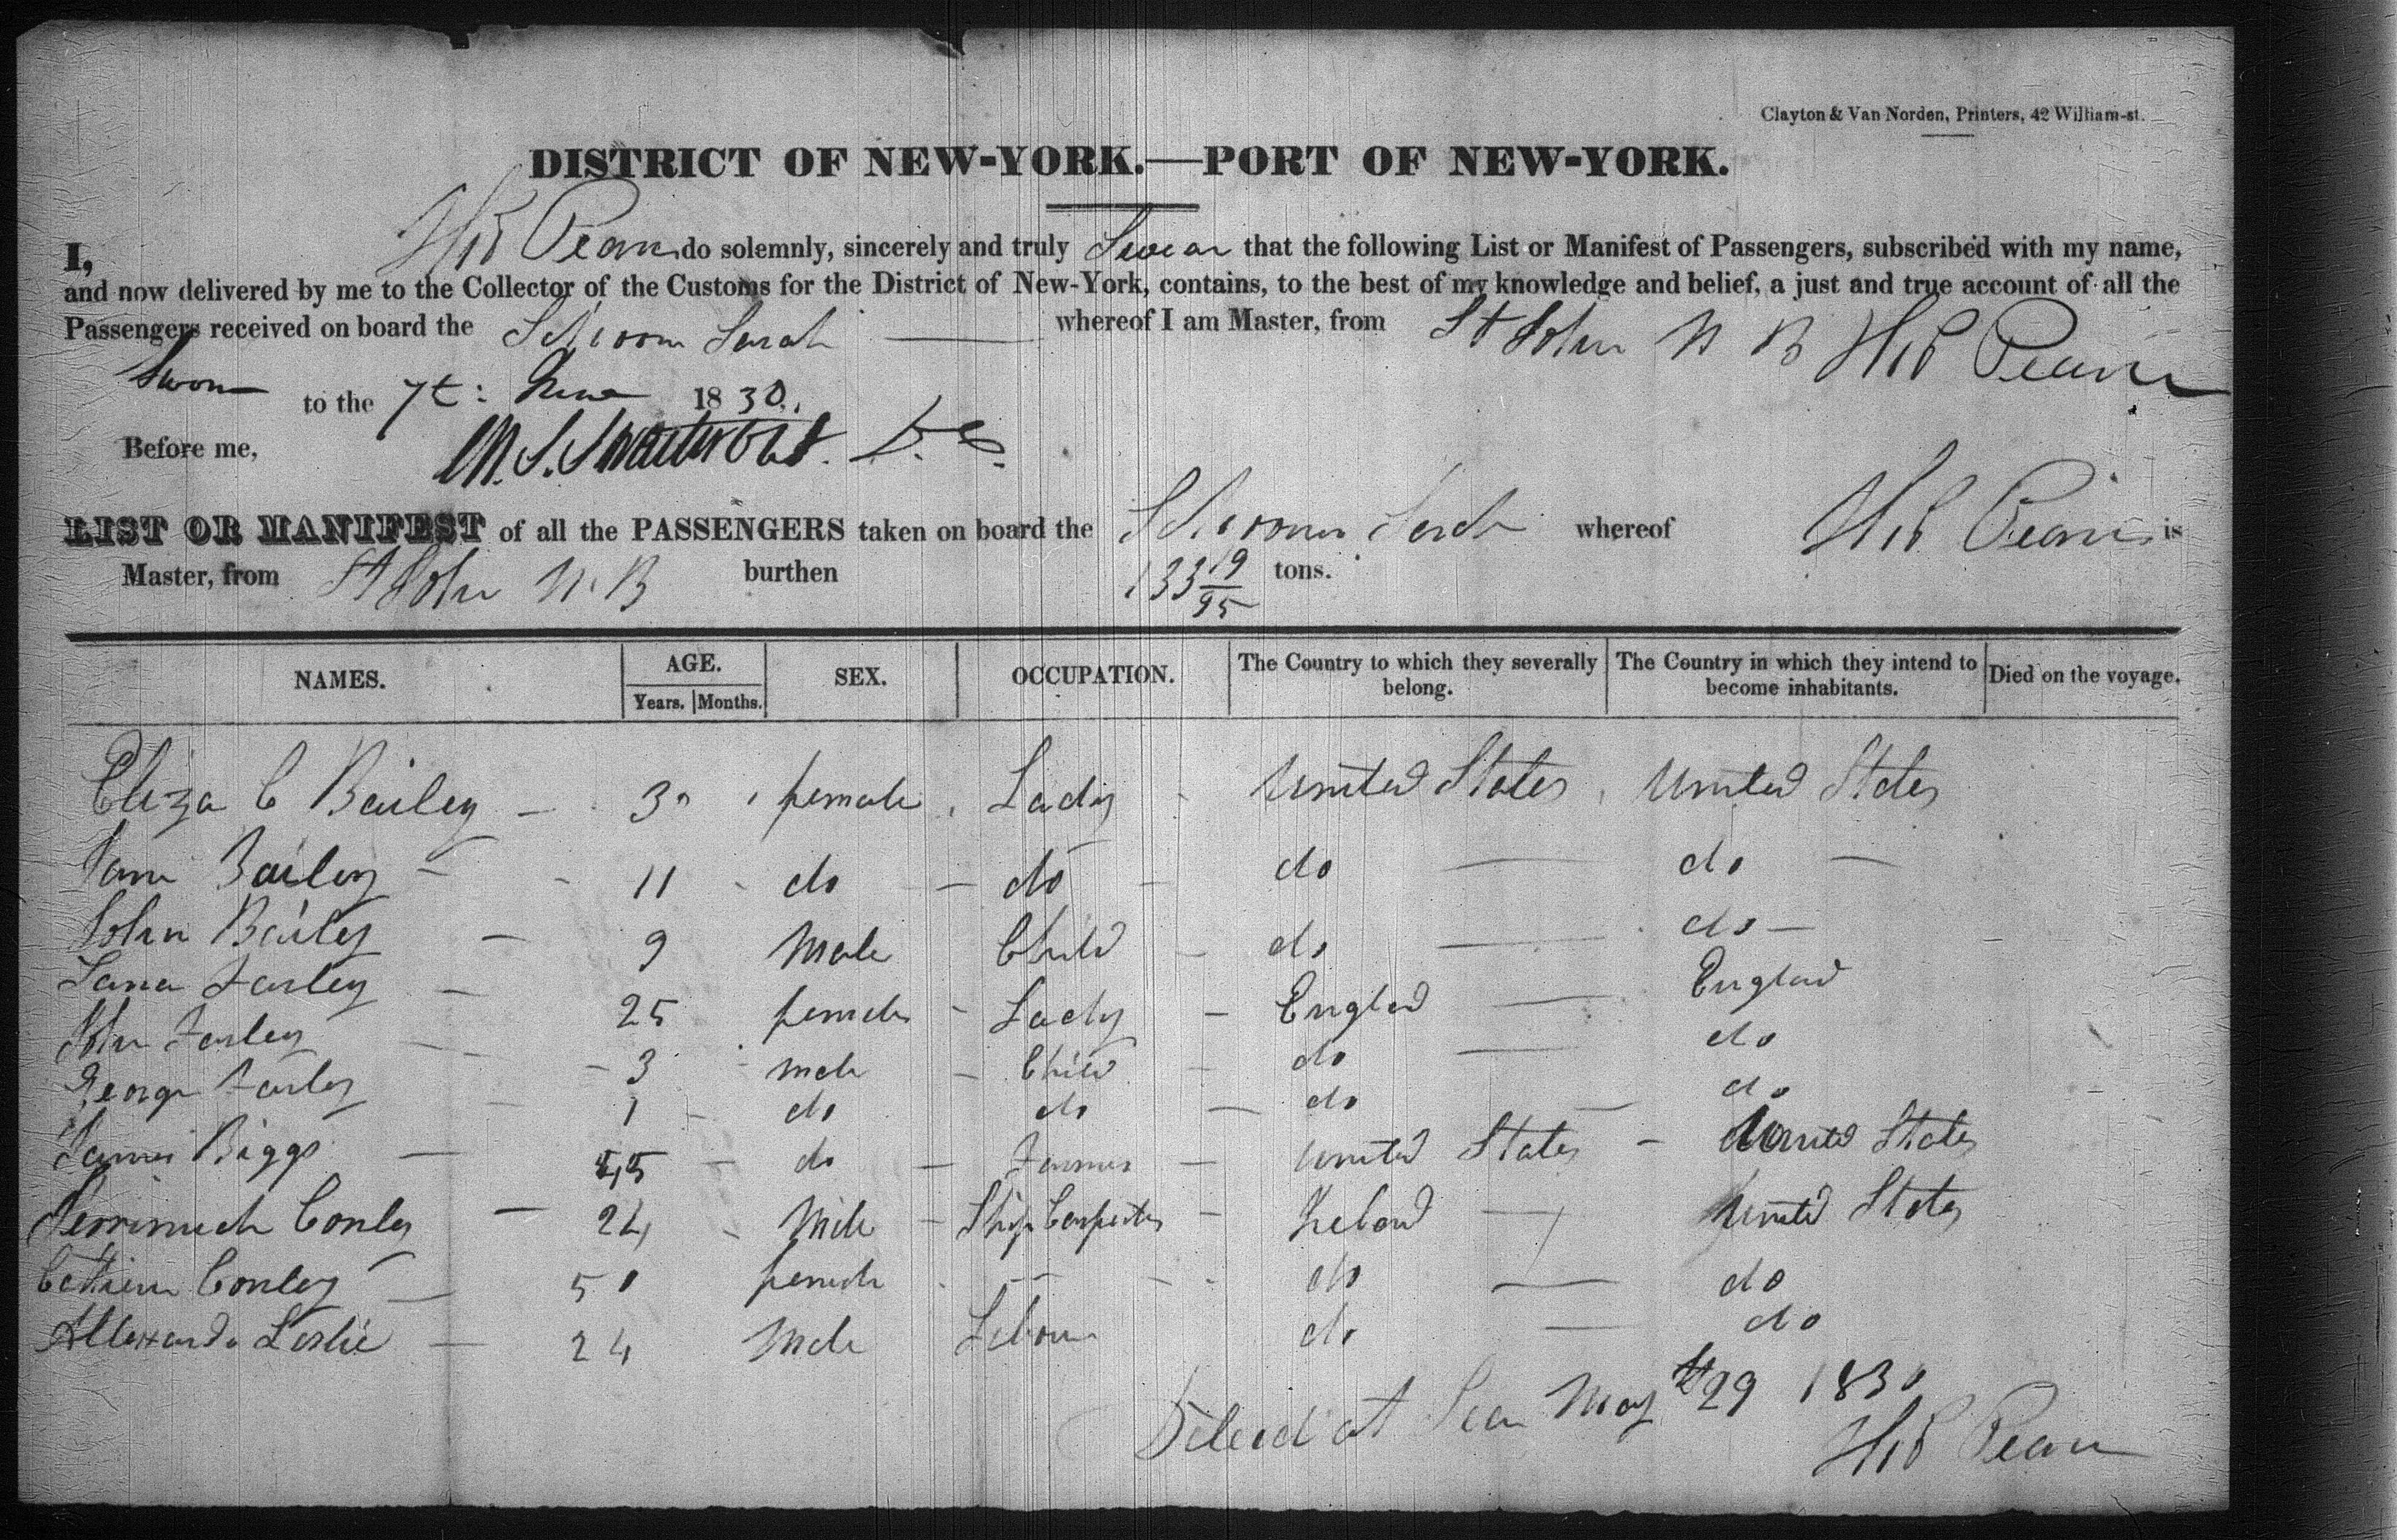 Clayton & Van Norden, Printers, 42 William-st.
DISTRICT OF NEW-YORK.—PORT OF NEW-YORK.
I, do solemnly, sincerely and truly Swear that the following List or Manifest of Passengers, subscribed with my name,
and now delivered by me to the Collector of the Customs for the District of New-York, contains, to the best of my knowledge and belief, a just and true account of all the
Passengers received on board the Schoon Sarah whereof I am Master, from St John N B
Sworn to the 7t: June 1830.
Before me, M. S. Swartwout. D. C.
LIST OR MANIFEST of all the PASSENGERS taken on board the Schooner Sarah whereof is
Master, from St John N. B burthen 133 19/95 tons.
NAMES. AGE. SEX. OCCUPATION. The Country to which they severally belong. The Country in which they intend to become inhabitants. Died on the voyage.
Years. Months.
Eliza C Bailey — 30 female Lady United States United States
Jane Bailey — 11 - do — do — do — do —
John Bailey — 9 Male Child — do — do —
Farley — 25 female - Lady — England — England
John Farley — 3 male — Child do — do
George Farley 1 - do do — do — do
James Biggs — 45 — do — Farmer — United States — United States
Conley — 24 - Male - Ship Carpenter - Ireland — United States
Conley — 50 female -- do — do
Allexander Leslie — 24 Male Labour do — do
at Sea May 29 1830